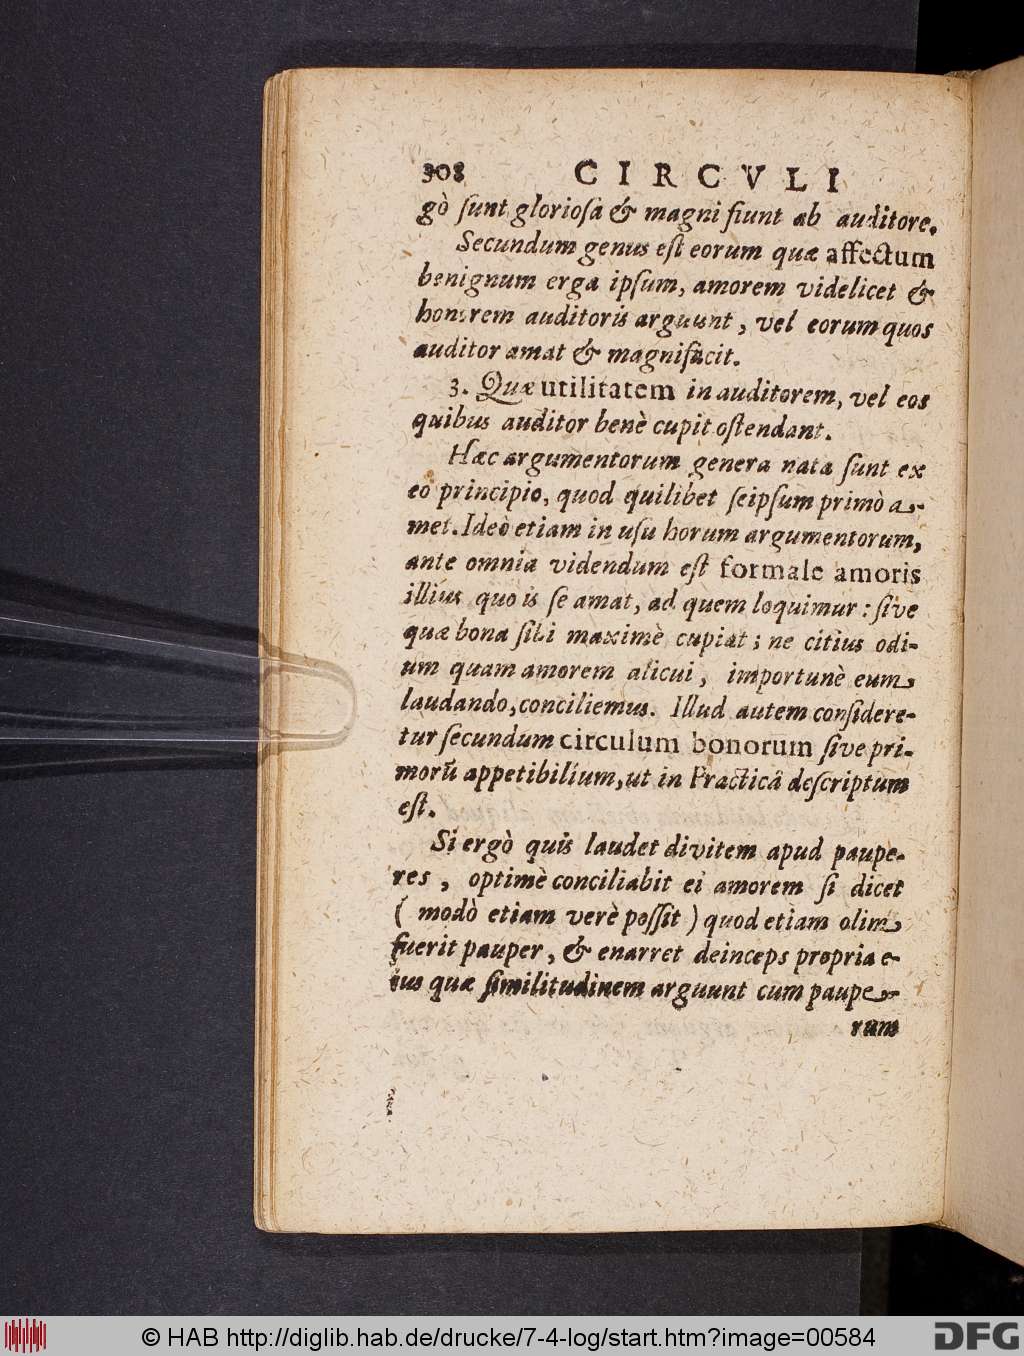 308 CIRCVLI
gò ſunt glorioſa & magni fiunt ab auditore.
Secundum genus eſt eorum quæ affectum
benignum erga ipſum, amorem videlicet &
honorem auditoris arguunt, vel eorum quos
auditor amat & magnifacit.
3. Quæ utilitatem in auditorem, vel eos
quibus auditor benè cupit oſtendant.
Hæc argumentorum genera nata ſunt ex
eo principio, quod quilibet ſeipſum primò a-
met. Ideò etiam in uſu horum argumentorum,
ante omnia videndum eſt formale amoris
illius quo is ſe amat, ad quem loquimur: ſive
quæ bona ſibi maximè cupiat; ne citius odi-
um quam amorem alicui, importunè eum
laudando, conciliemus. Illud autem conſidere-
tur ſecundum circulum bonorum ſive pri-
morũ appetibilium, ut in Practicâ deſcriptum
eſt.
Si ergò quis laudet divitem apud paupe-
res, optimè conciliabit ei amorem ſi dicet
( modò etiam verè poſſit ) quod etiam olim
fuerit pauper, & enarret deinceps propria e-
ius quæ ſimilitudinem arguunt cum paupe-
rum
© HAB http://diglib.hab.de/drucke/7-4-log/start.htm?image=00584
DFG